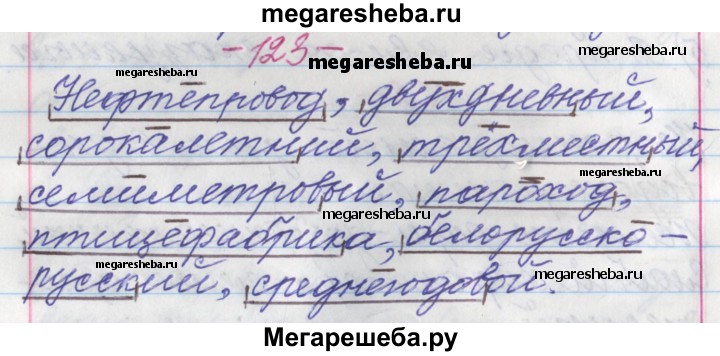 megaresheba.ru
-123-
megaresheba.ru
megaresheba.ru
Нефтепровод, двухдневный,
megaresheba.ru
сорокалетний, трёхместный,
семиметровый, пароход,
megaresheba.ru
megaresheba.ru
птицефабрика, белорусско-
русский, среднегодовой.
megaresheba.ru
megaresheba.ru
Мегарешеба.ру